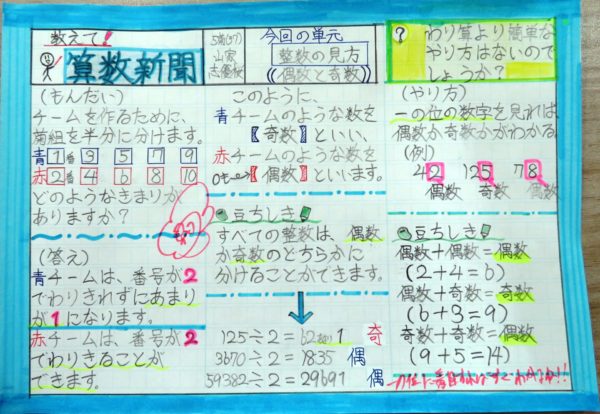 教えて!
算数新聞
5年(37)
今回の単元
整数の見方
《偶数と奇数》
(もんだい)
チームを作るために、
菊組を半分に分けます。
青 1番 3 5 7 9
赤 2番 4 6 8 10
どのようなきまりが
ありますか?
(答え)
青チームは、番号が2
でわりきれずにあまり
が1になります。
赤チームは、番号が2
でわりきることが
できます。
このように、
青チームのような数を
【奇数】といい、
赤チームのような数を
0も→【偶数】といいます。
豆ちしき
すべての整数は、偶数
か奇数のどちらかに
分けることができます。
125÷2=62あまり1 奇
3670÷2=1835 偶
59382÷2=29691 偶
? わり算より簡単な
やり方はないので
しょうか?
(やり方)
一の位の数字を見れば
偶数か奇数かがわかる。
(例)
42 125 778
偶数 奇数 偶数
豆ちしき
偶数+偶数=偶数
(2+4=6)
偶数+奇数=奇数
(6+3=9)
奇数+奇数=偶数
(9+5=14)